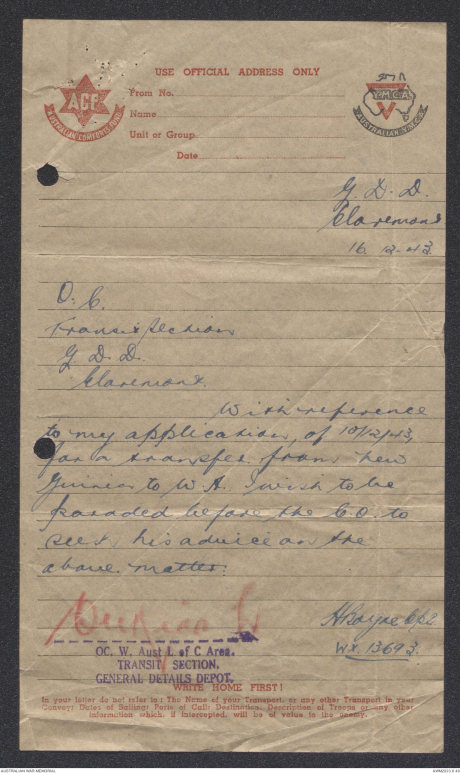 USE OFFICIAL ADDRESS ONLY
ACF
AUSTRALIAN COMFORTS FUND
Y.M.C.A.
AUSTRALIAN Y.M.C.A.
From No.
Name
Unit or Group
Date
G. D. D.
Claremont
16. 12. 43.
O. C.
Transit Section
G. D. D.
Claremont.
With reference
to my application, of 10/12/43,
for a transfer from New
Guinea to W.A. I wish to be
paraded before the C.O. to
seek his advice on the
above matter.
Cpl
WX. 13693.
OC. W. Aust L of C Area.
TRANSIT SECTION.
GENERAL DETAILS DEPOT.
WRITE HOME FIRST!
In your letter do not refer to: The Name of your Transport, or any other Transport in your
Convoy: Dates of Sailing: Ports of Call: Destination: Description of Troops or any other
information which, if intercepted, will be of value to the enemy.
AUSTRALIAN WAR MEMORIAL